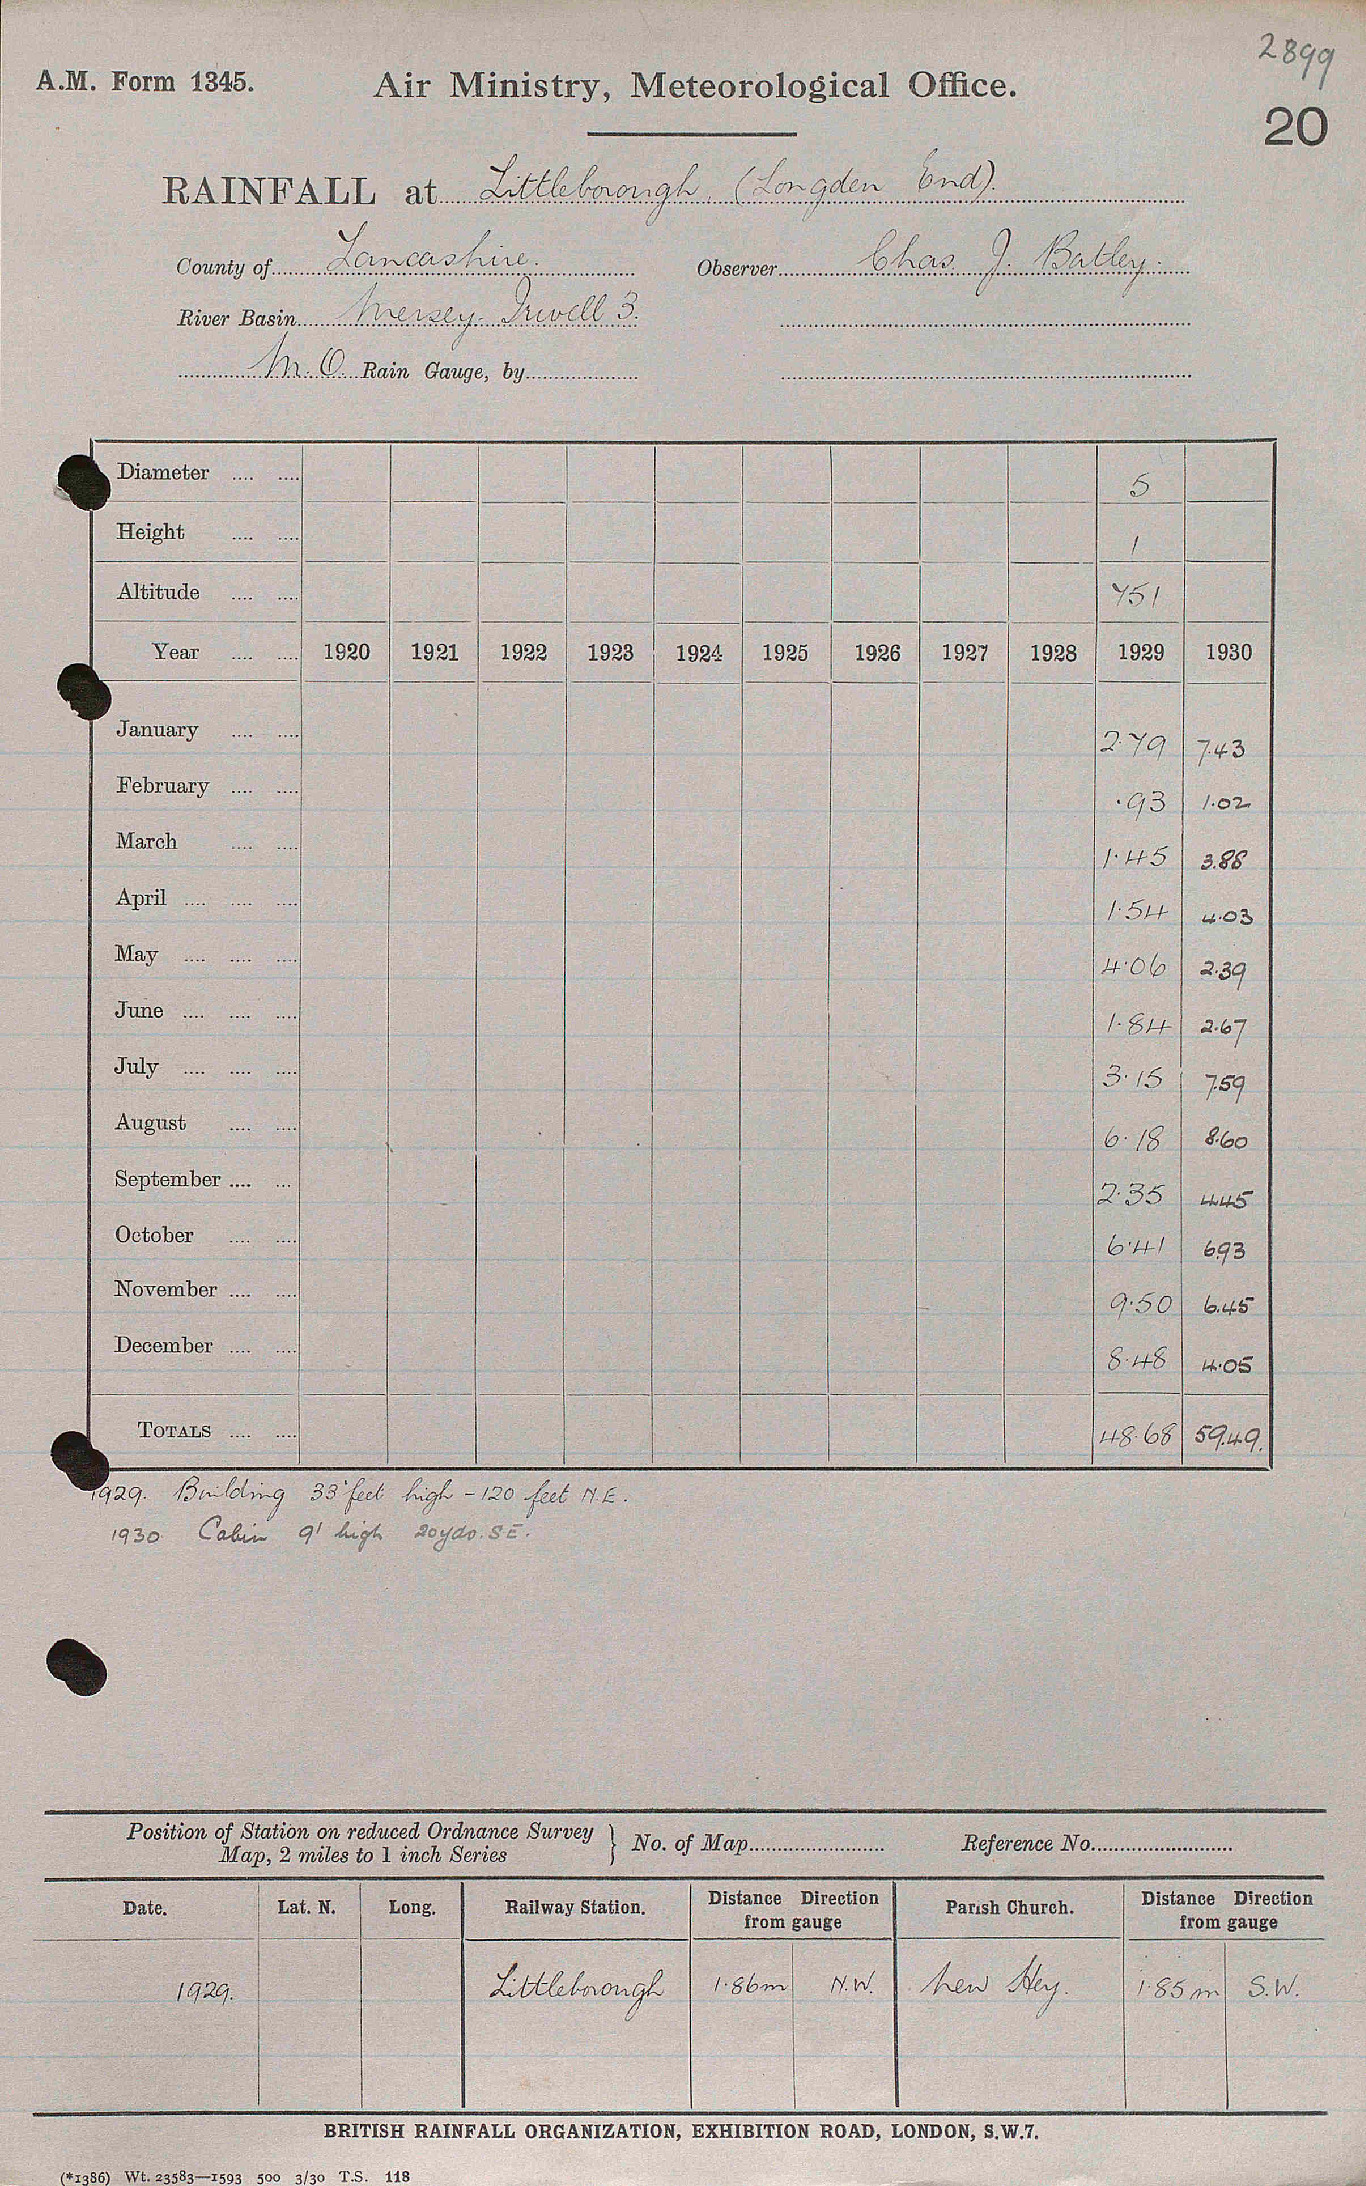 2899
A.M. Form 1345. Air Ministry, Meteorological Office.
20
RAINFALL at Littleborough. (Longden End).
County of Lancashire. Observer Chas. J. Batley.
River Basin Mersey. Irwell 3.
M.O. Rain Gauge, by
Diameter .... .... 5
Height .... .... 1
Altitude .... .... 751
Year .... .... 1920 1921 1922 1923 1924 1925 1926 1927 1928 1929 1930
January .... .... 2.79 7.43
February .... .... .93 1.02
March .... .... 1.45 3.88
April .... .... .... 1.54 4.03
May .... .... .... 4.06 2.39
June .... .... .... 1.84 2.67
July .... .... .... 3.15 7.59
August .... .... 6.18 8.60
September .... ... 2.35 4.45
October .... .... 6.41 6.93
November .... .... 9.50 6.45
December .... .... 8.48 4.05
TOTALS .... .... 48.68 59.49.
1929. Building 33 feet high - 120 feet N.E.
1930. Cabin 9' high 20yds. S.E.
Position of Station on reduced Ordnance Survey
Map, 2 miles to 1 inch Series } No. of Map Reference No.
Date. Lat. N. Long. Railway Station. Distance Direction from gauge Parish Church. Distance Direction from gauge
1929. Littleborough 1.86m N.W. New Hey. 1.85m S.W.
BRITISH RAINFALL ORGANIZATION, EXHIBITION ROAD, LONDON, S.W.7.
(*1386) Wt. 23583—1593 500 3/30 T.S. 118